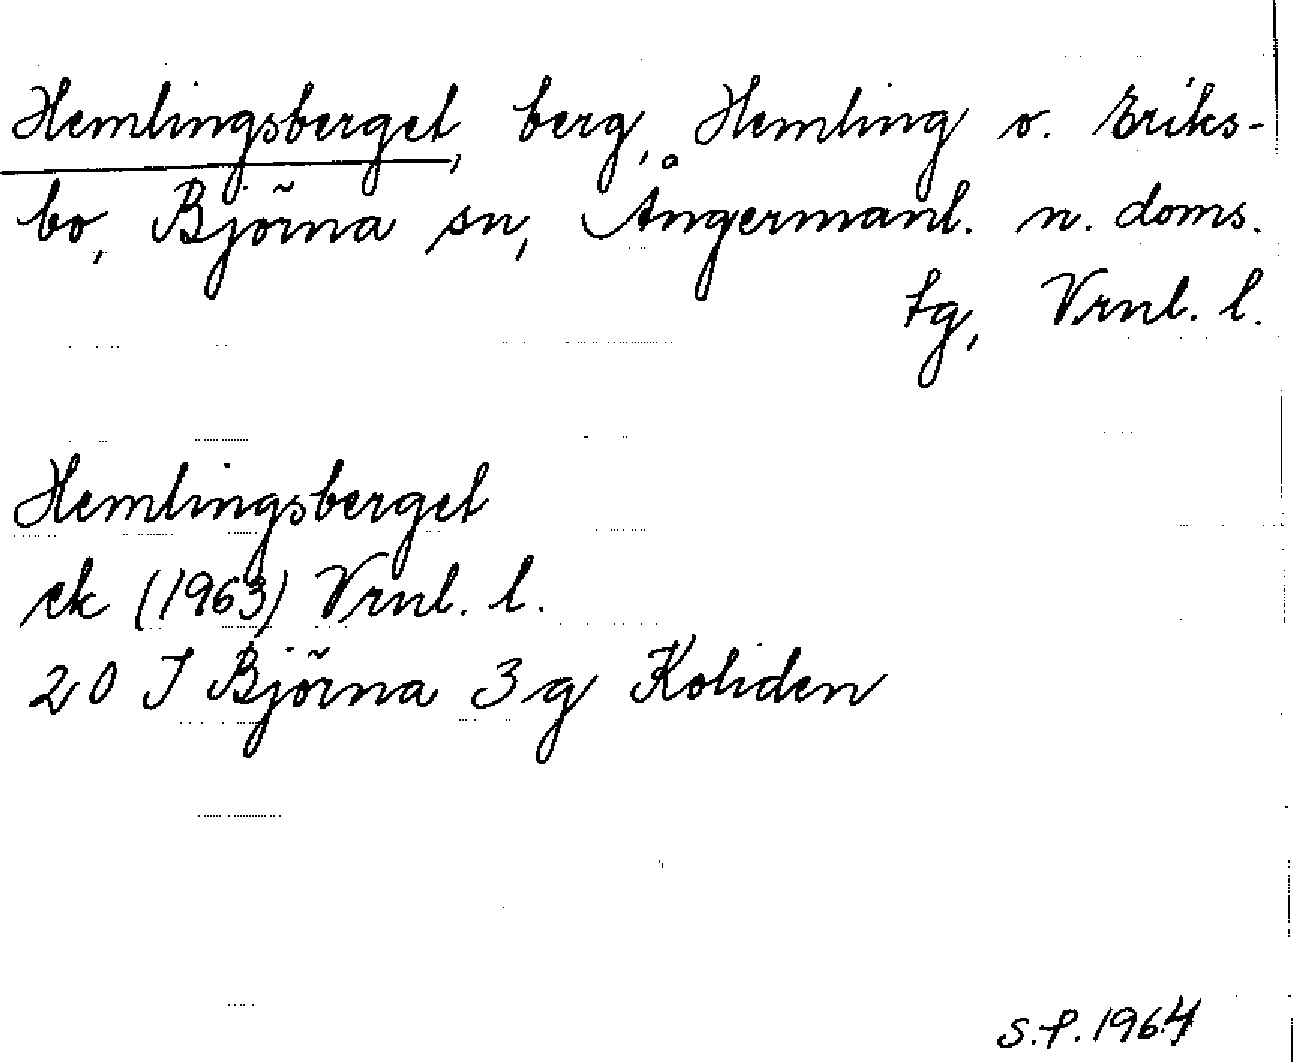 Hemlingsberget, berg, Hemling o. Eriks-
bo, Björna sn, Ångermanl. n. doms.
tg, Vrnl. l.
Hemlingsberget
ek (1963) Vrnl. l.
20 I Björna 3g Koliden
S.F. 1964